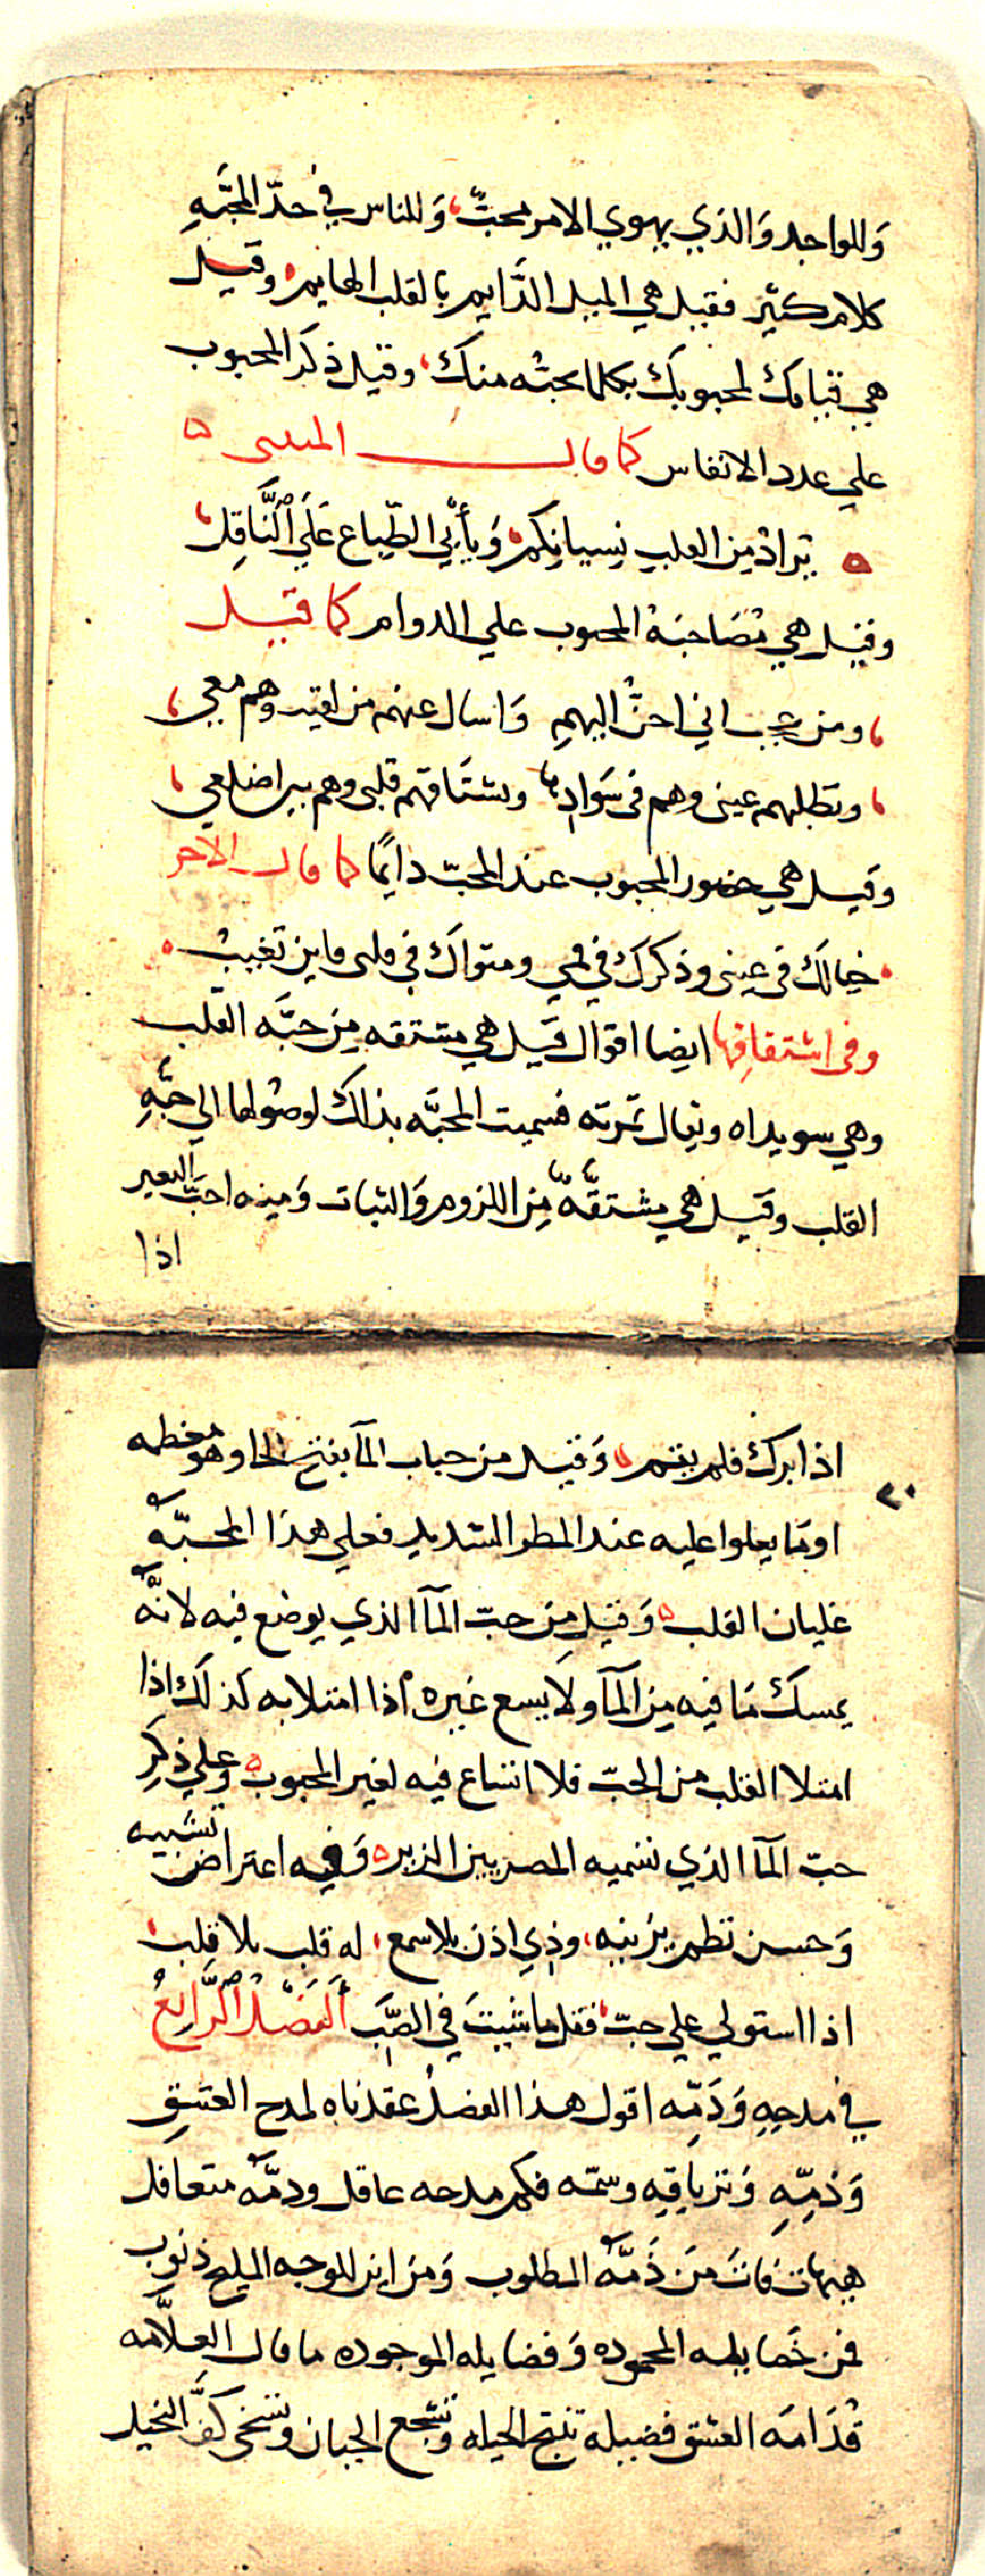 وَللواجد وَالذي يهوي الامر محبٌّ، وَللناس في حدّ المحبَّهِ
كلام كثير فقيل هي الميل الدَّايم بالقلب الهايم، وقيل
هي قيامك لمحبوبك بكلما يحبّه منك، وقيل ذكر المحبوب
علي عدد الانفاس كما قال المتنبى ه
ه يُرادُ مِن القلبِ نِسيانكم، وَيأبَي الطّباع عَلَي ٱلنَّاقِلِ،
وقيل هي مُصَاحَبَة المحبوب علي الدوام كما قيل
، ومن عجب اني احنُّ اليهمِ وَاسال عنهم من لقيت وهم معي،
، وتطلبهم عينى وهم فى سَوَادِها وتشتَاقهم قلبى وهم بين اضلعي،
وقيل هي حضور المحبوب عند المحبّ دايمًا كما قال الآخر
، خيالكَ فى عينى وذكركَ في فمي ومثواكَ في قلبى فاين تَغيبُ ،
وفى اشتقاقِها ايضا اقوال قيل هي مشتقه مِن حبَّه القلب
وهي سويداه ويقال ثمرته فسميت المحبَّه بذلك لوصُولها الي حبَّهِ
القلب وقيل هي مشتقَّةٌ مِن اللزوم وَالثبات وَمِنه احبَّ البعير
اذا
٢٠
اذا برك فلم يقم، وَقيل من حباب المآ بفتح الحا وهو معظمه
او مَا يعلوا عليه عند المطر الشديد فعلي هذا المحبَّه
غليان القلب ه وَقيل مِن حبّ المآ الذي يوضع فيه لانَّه
يمسك مَا فيه مِن المآ ولا يسع غيره اذا امتلا به كذلك اذا
امتلا القلب من الحبّ فلا اتساع فيه لغير المحبوب ه وعلي ذكرِ
حبّ المآ الذي تسميه المصريين الزير ه وَفيه اعتراض تشبيه
وَحسن نظم يزينه، وذي اذن بلا سمع، له قلب بلا قلب،
اذا استولي علي حبّ، فقل ما شيتَ في الصَّبِّ أَلفَصْلُ ٱلرَّابِعُ
في مدحِهِ وَذَمِّه اقول هذا الفصلُ عقدناه لمدح العشقِ
وَذمِّهِ وَترياقِهِ وسمّه فكم مدحه عاقل وذمَّه متعاقل
هيهات فاتَ مَن ذَمَّهُ المطلوب وَمن اين للوجه المليح ذنوب
فمن خَصايله المحموده وَفضايله الموجوده ما قال العلاَّمه
قُدَامَه العشق فضيله تنتج الحيله وَتشجع الجبان وتسخى كفَّ البخيل